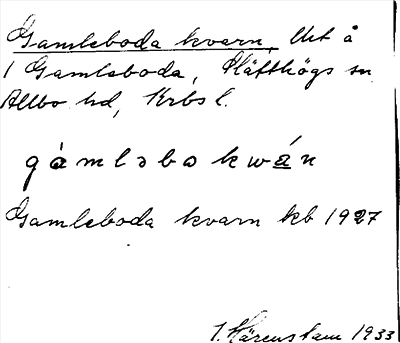 Gamleboda kvarn, Vid å
1 Gamleboda, Slätthögs sn
Allbo hd, Krbs l.
gàmləbə kwán
Gamleboda kvarn kb 1927
J. Kärenstam 1933